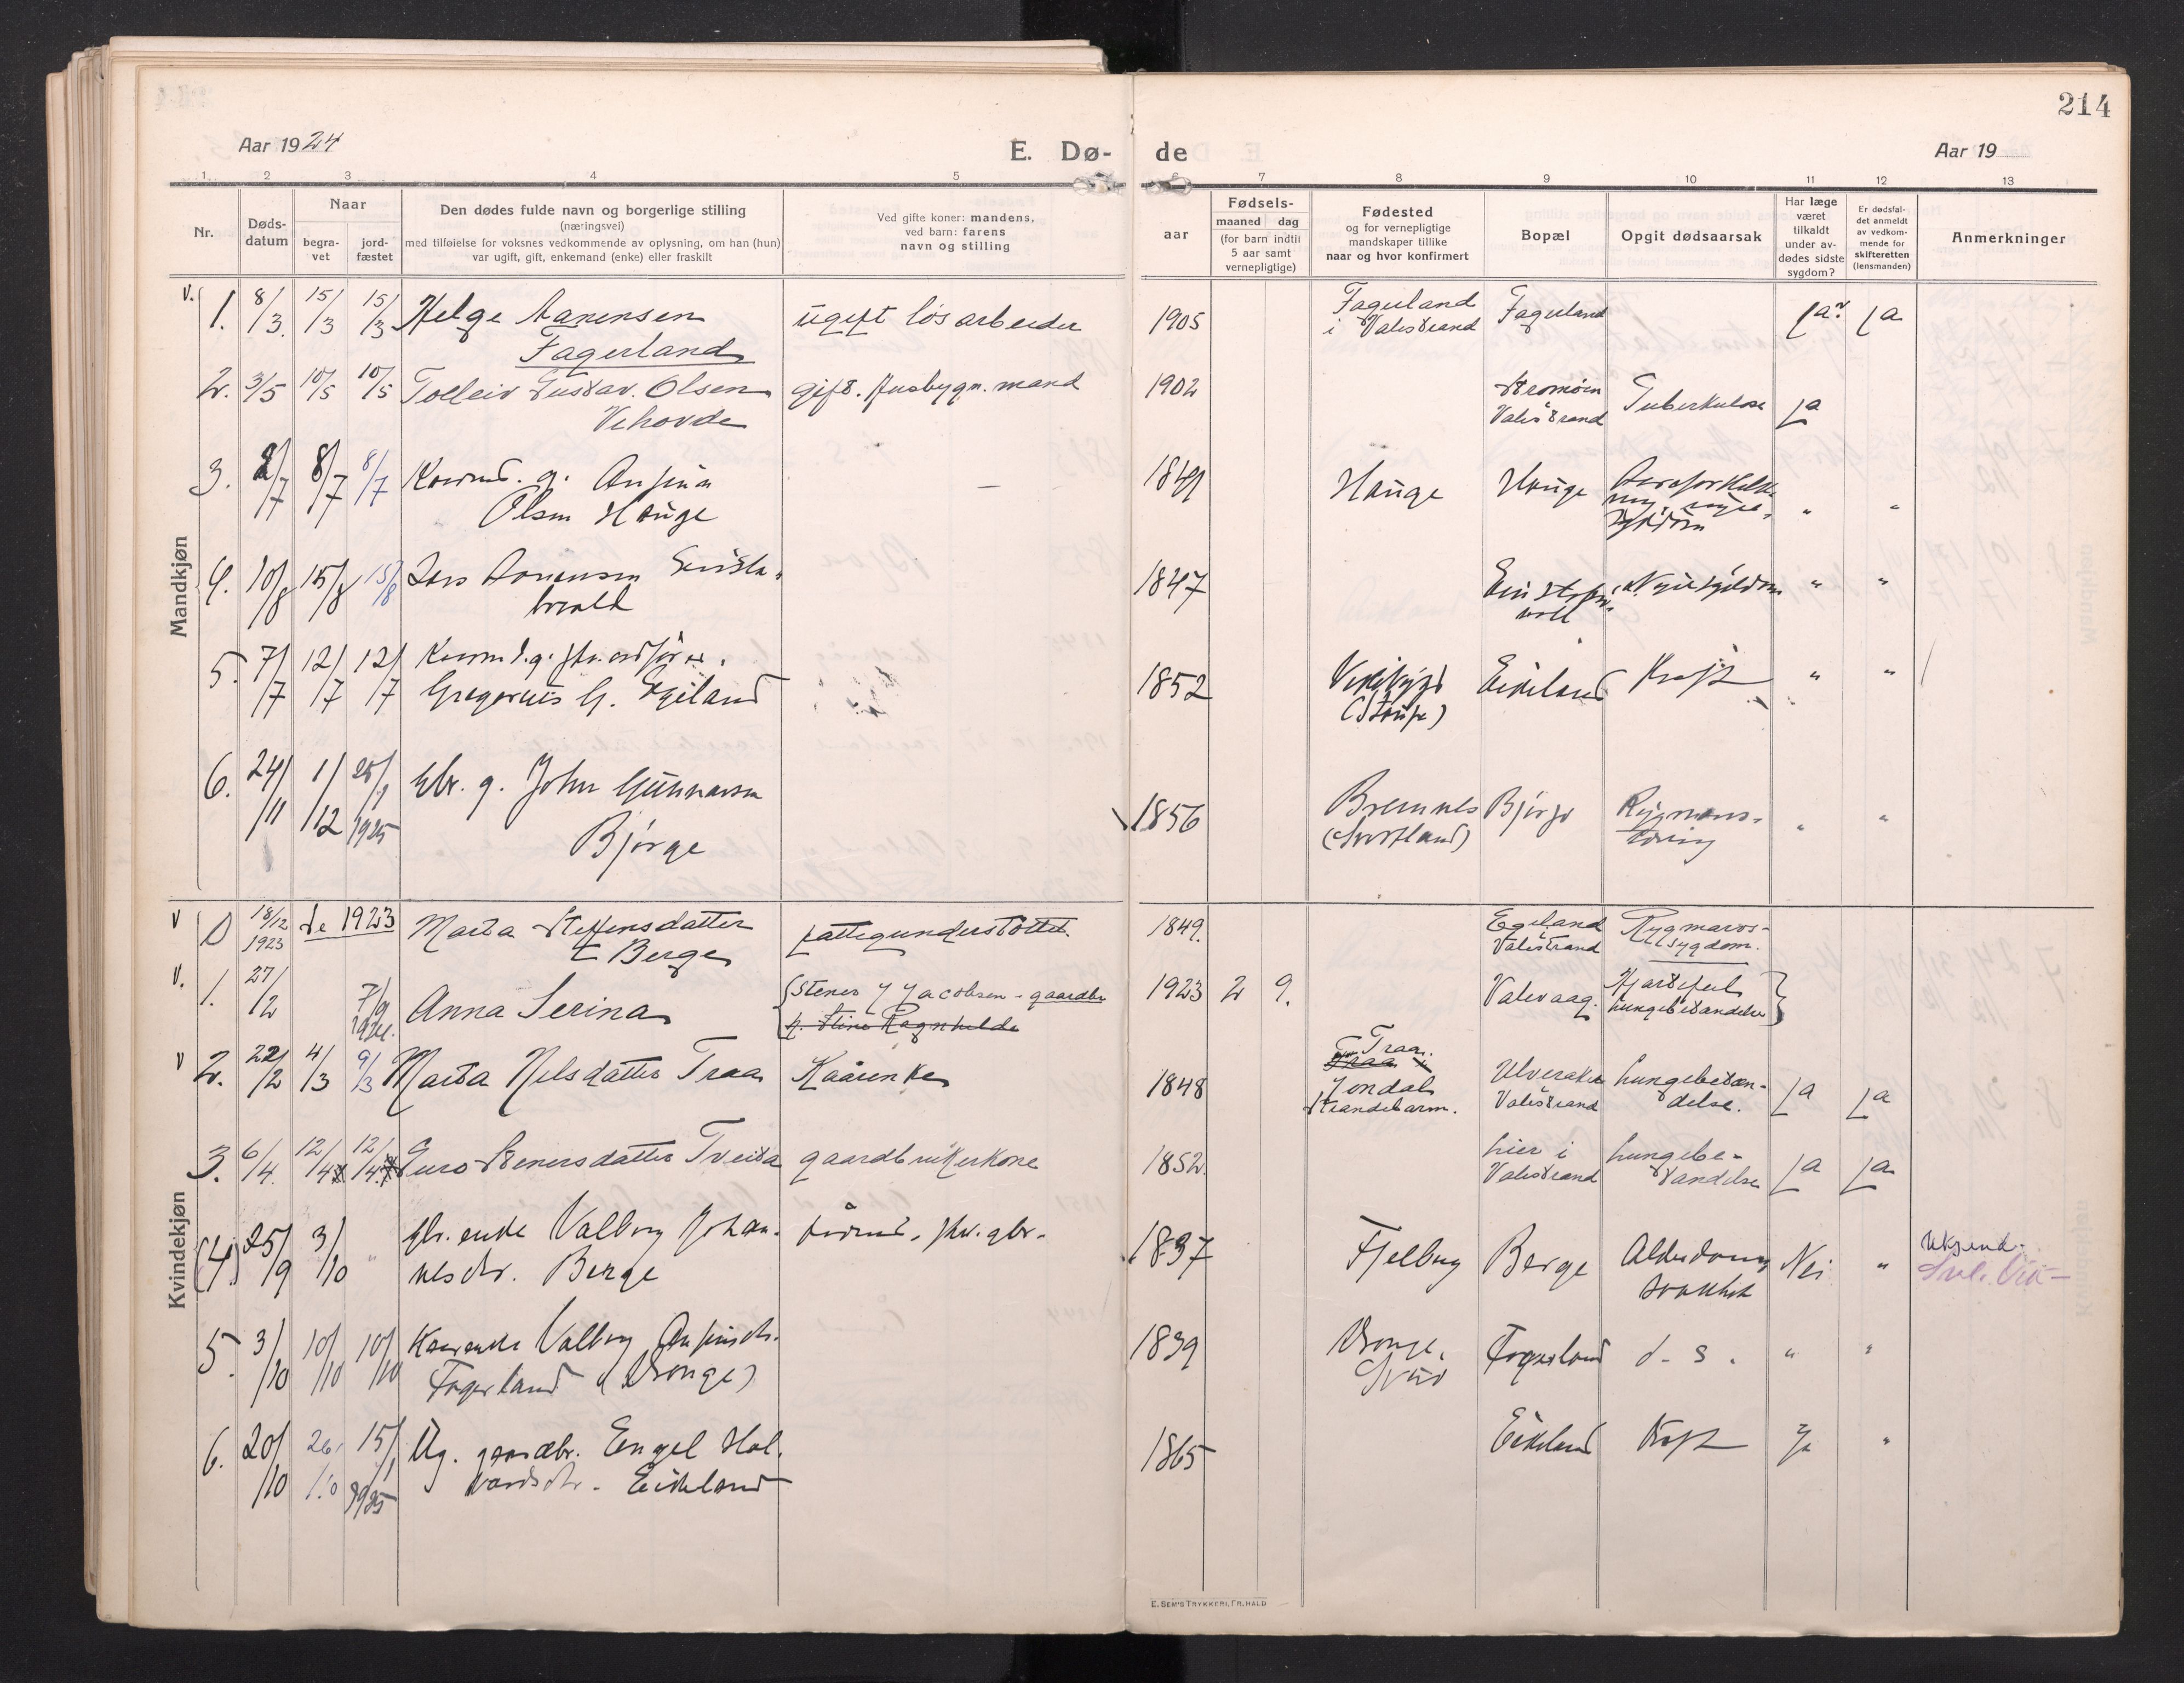 214
Aar 1924
E. Dø-
de
Aar 19
1 2 3 4 5 6 7 8 9 10 11 12 13
Nr.
Døds-
datum
Naar
begra-
vet
jord-
fæstet
Den dødes fulde navn og borgerlige stilling
(næringsvei)
med tilføielse for voksnes vedkommende av oplysning, om han (hun)
var ugift, gift, enkemand (enke) eller fraskilt
Ved gifte koner: mandens,
ved barn: farens
navn og stilling
Fødsels-
aar
maaned dag
(for barn indtil
5 aar samt
vernepligtige)
Fødested
og for vernepligtige
mandskaper tillike
naar og hvor konfirmert
Bopæl
Opgit dødsaarsak
Har læge
været
tilkaldt
under av-
dødes sidste
sygdom?
Er dødsfal-
det anmeldt
av vedkom-
mende for
skifteretten
(lensmanden)
Anmerkninger
Mandkjøn
V. 1. 8/3. 15/3 15/3 Helge Aanensen ugift løsarbeider 1905 Fagerland Fagerland Ja Ja
Fagerland i Valestrand
2. 3/5 10/5 10/5 Tolleiv Gustav Olsen gift. husbygn. mand 1902 Strømøen Tuberkulose Ja
Vehovde Valestrand
3. 2/7 8/7 8/7 Kaarmd. g. Ansfin — 1841 Hauge Hauge
Olsen Hauge
4. 10/8 15/8 15/8 Lars 1847 " "
5. 7/7 12/7 12/7 1852 Eikeland Kræft " "
G. Egeland
6. 24/11 1/12 25/1 1925 gbr. g. John Gunnarsen 1856 Bremnes Bjørge Rygmarvs- " "
Bjørge (Svortland) tæring
Kvindekjøn
V 18/12 1923 Se 1923 Marta Steffensdatter fattigunderstøttet. 1849. Egeland Rygmarvs-
Berge Valestrand sygdom.
V. 1. 27/2 7/9 1924. Anna Serina Stener J Jacobsen - gaardbr 1923 2 9. Valevaag. Hjertefeil
Stine Ragnhilde lungebetændelse
V 2. 22/2 4/3 9/3 Marta Nelsdatter Traa Kaarenke 1848 Traa Ulveraker lungebetæn- Ja Ja
Jondal Valestrand delse.
Strandebarm.
3. 6/4. 12/4 12/4 Guro Stenersdatter Tveita gaardbrukerkone 1852. her i lungebe- Ja Ja
Valestrand tændelse
(4) 25/9 3/10 " gbr. enke Valborg Johan- 1837 Fjelberg Berge Alderdoms Nei "
nesdtr. Berge svakhet
5. 3/10 10/10 10/10 Kaarenke Valborg Ansfinsdtr. 1839 Fagerland d. s. " "
Fagerland
6. 20/10 26/10 15/1 1925 Ug. gaardbr. Engel Hal- 1865 Eikeland Kræft Ja "
vardsdtr. Eikeland
E. SEM'S TRYKKERI, FR. HALD